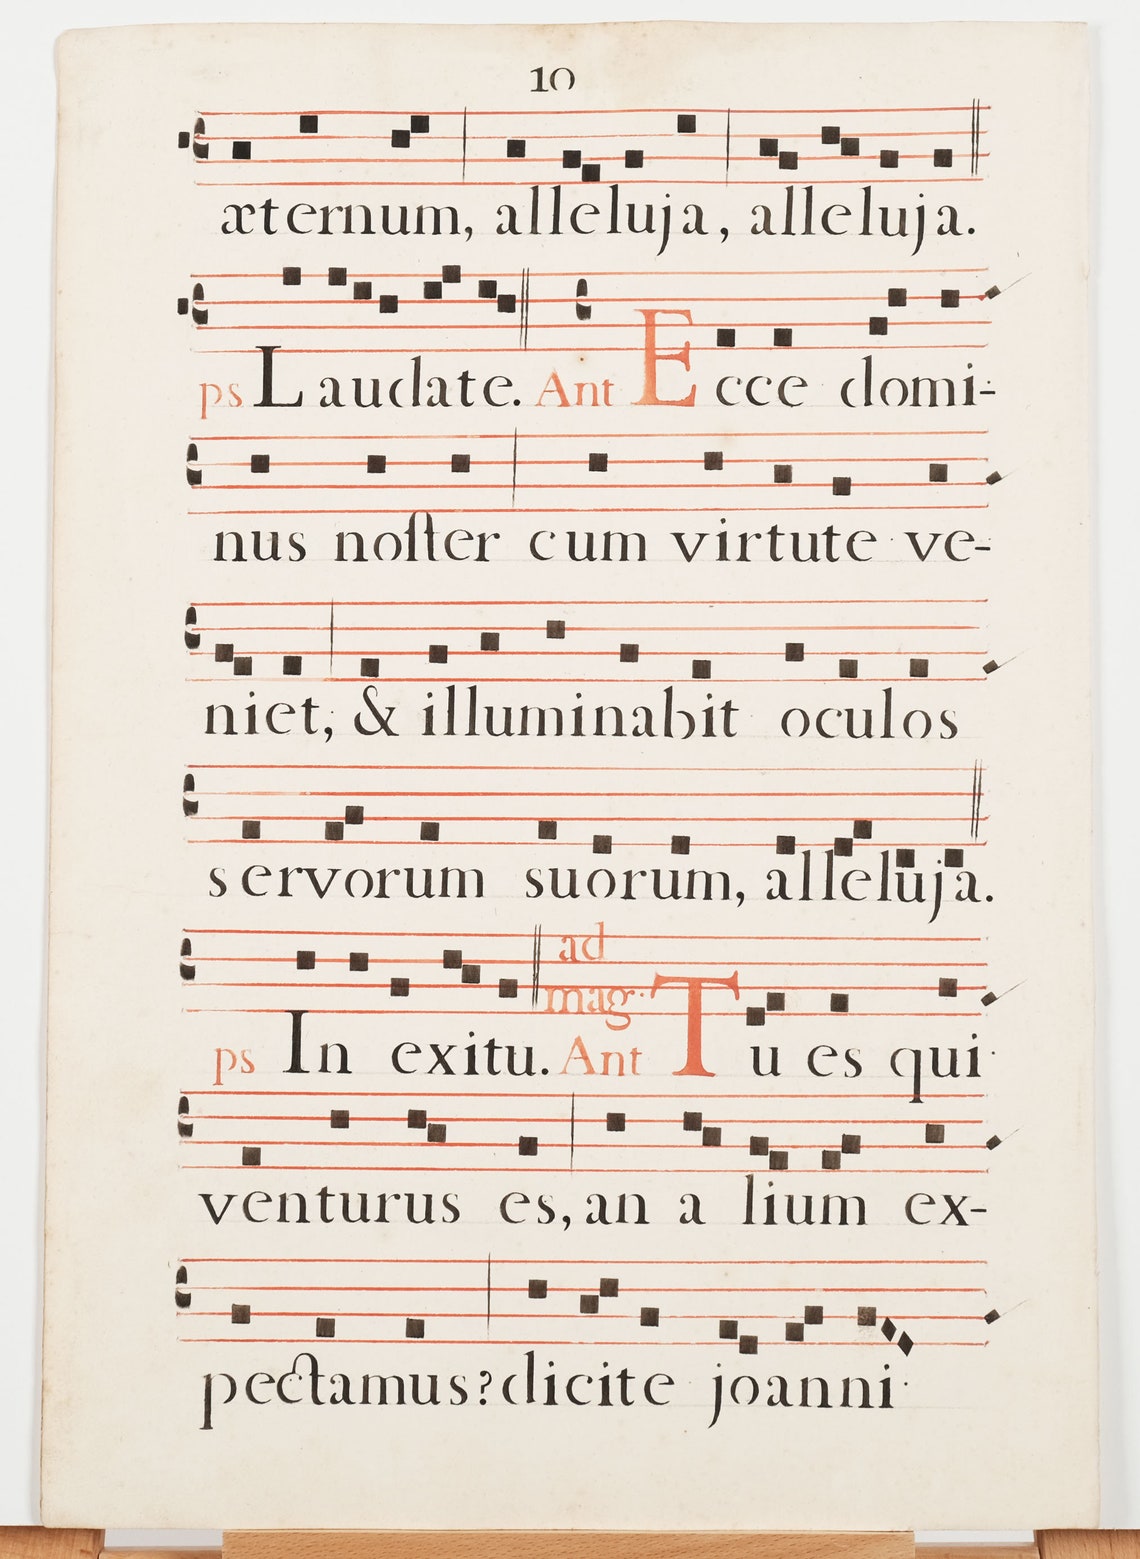 10
æternum, alleluja, alleluja.
ps Laudate. Ant Ecce domi-
nus noſter cum virtute ve-
niet, & illuminabit oculos
servorum suorum, alleluja.
ad
mag.
ps In exitu. Ant Tu es qui
venturus es, an alium ex-
pectamus? dicite joanni